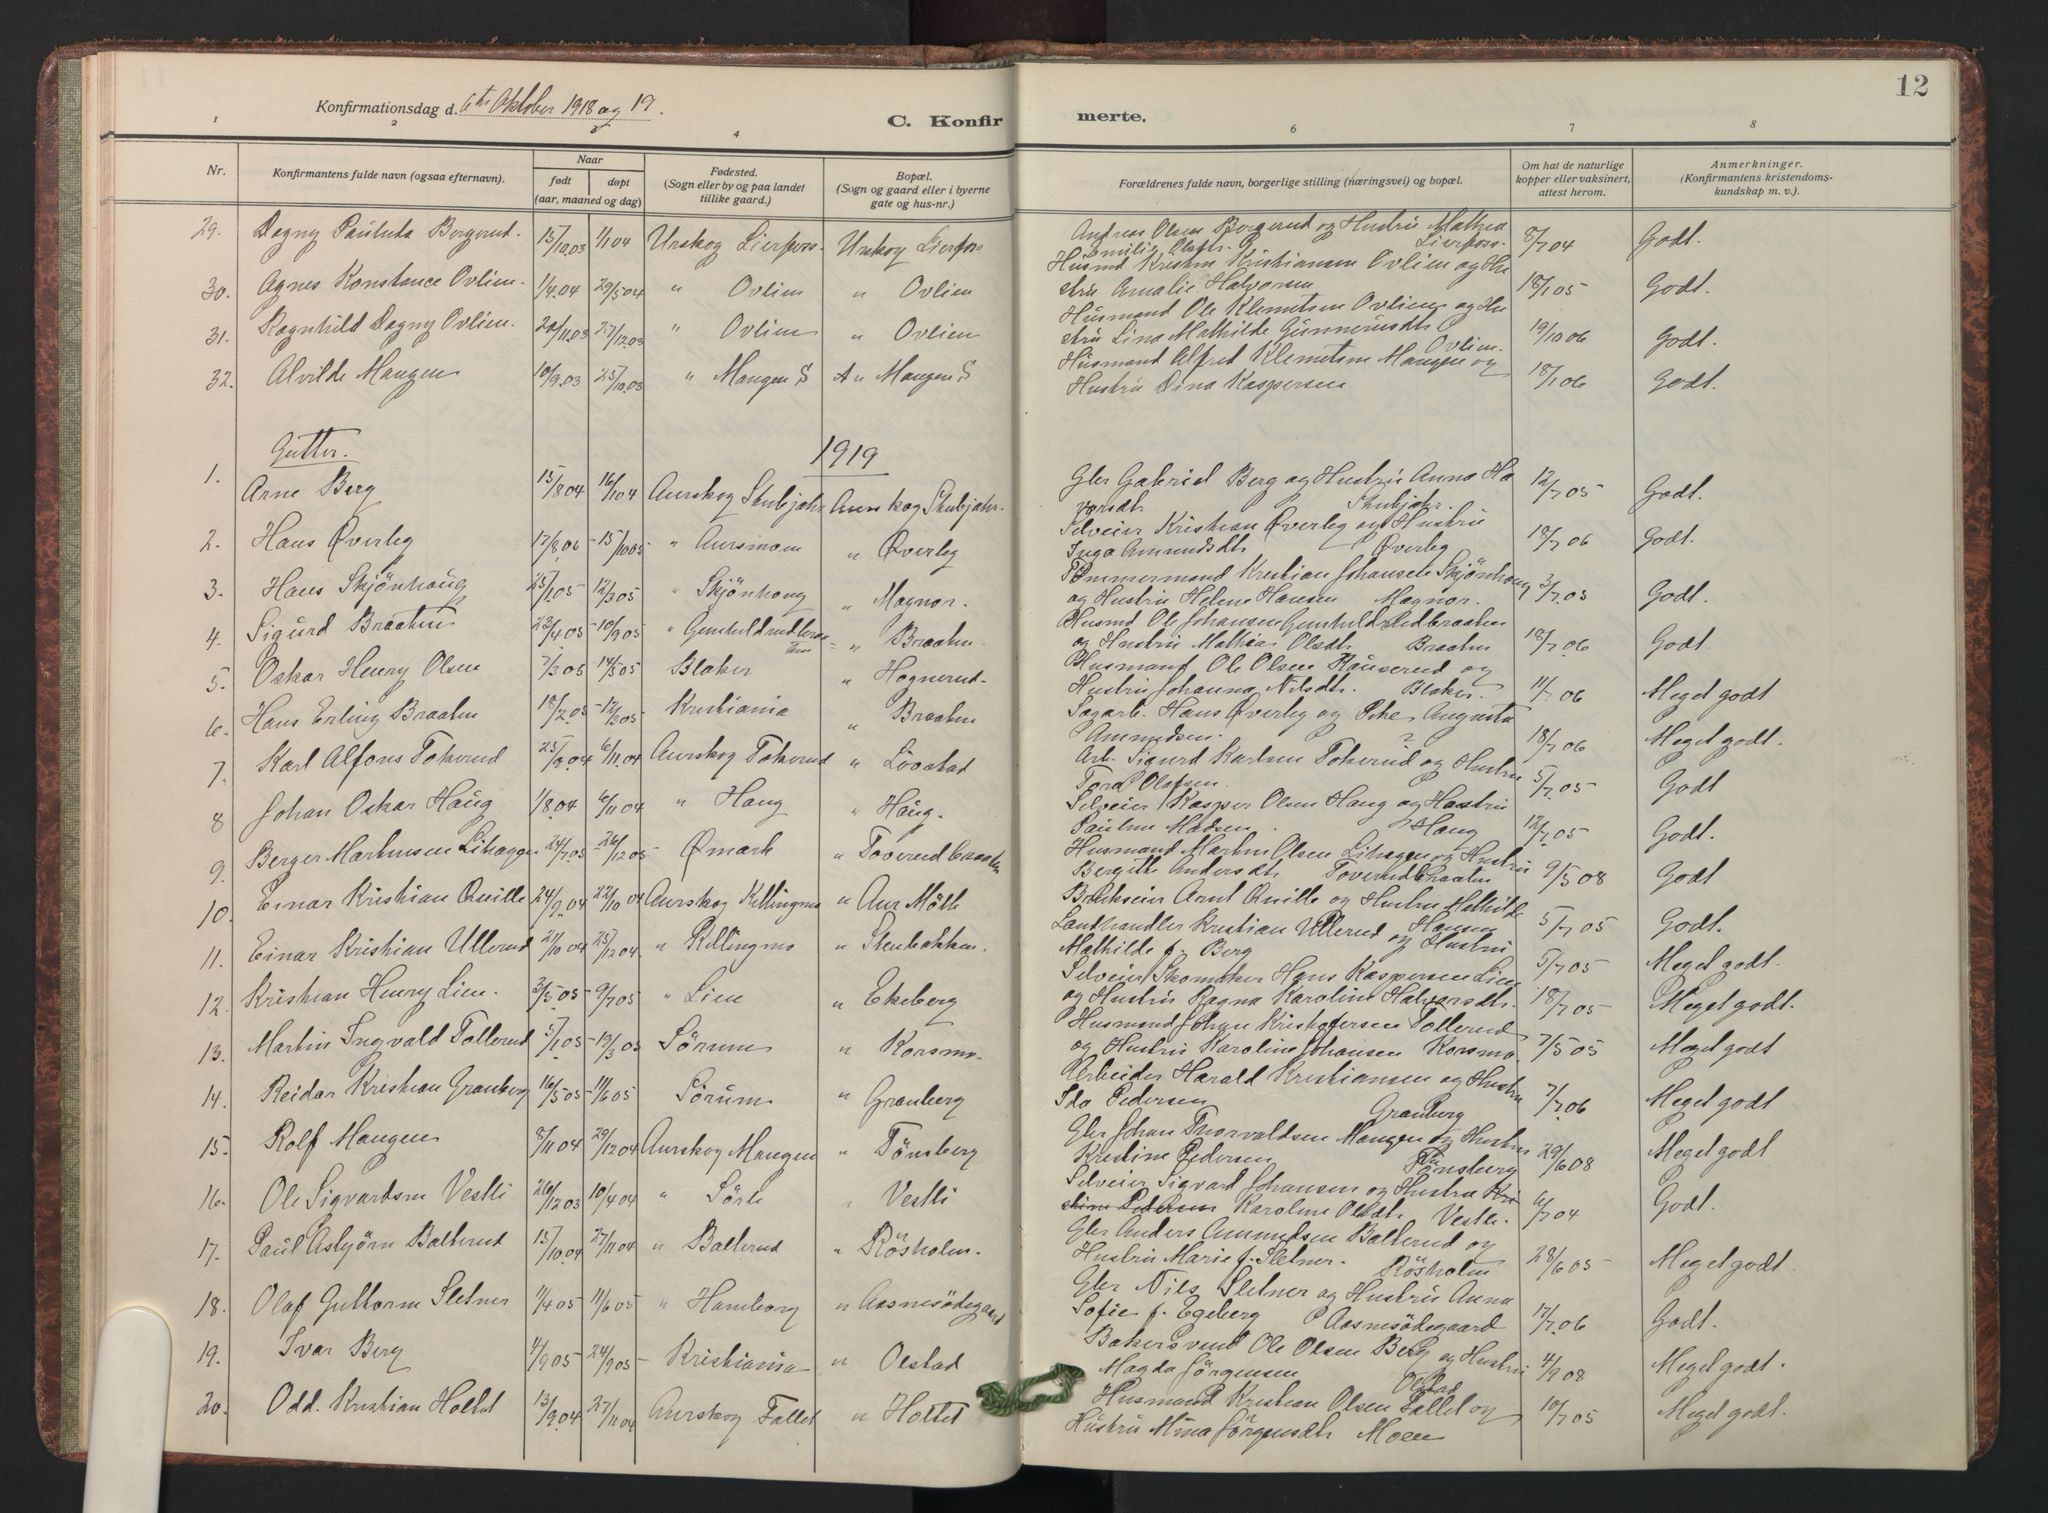 12
Konfirmationsdag d. 6te Oktober 1918 og 19.
C. Konfirmerte.
1 2 3 4 6 7 8
Nr. Konfirmantens fulde navn (ogsaa efternavn). Naar født døpt (aar, maaned og dag) Fødested. (Sogn eller by og paa landet tillike gaard.) Bopæl. (Sogn og gaard eller i byerne gate og hus-nr.) Forældrenes fulde navn, borgerlige stilling (næringsvei) og bopæl. Om hat de naturlige kopper eller vaksinert, attest herom. Anmerkninger. (Konfirmantens kristendomskundskap m. v.).
29. Dagny Paulula Bergerud 15/10.03 1/1 04 Urskog Lierfoss Urskog Lierfoss Andreas Olsen Bergerud og Hustru Mathea Emilie Olsdt. Lierfoss. 8/7 04 Godt.
30. Agnes Konstance Ovlien. 1/4.04 29/5 04 " Ovlien " Ovlien Husmd Kristen Kristiansen Ovlien og Hustru Amalie Halvorsen 18/1 05 Godt.
31. Ragnhild Dagny Ovlien. 20/11.03 27/12.03 " Ovlien " Ovlien Husmand Ole Klemetsen Ovlien og Hustru Lina Mathilde Gunnerusdt Ovlien. 19/10 06 Godt.
32. Alvilde Mangen 10/9.03 25/10.03 " Mangen S " Mangen S Husmand Alfred Klemetsen Mangen og Hustru Dina Kaspersen 18/1 06 Godt.
Gutter. 1919
1. Arne Berg 15/8 04 16/1 04 Aurskog Stubjahr Aurskog Stubjahr. Gbr Gabriel Berg og Hustru Anna Havorsdt. Stubjahr. 12/7 05 Godt.
2. Hans Øverby 17/8.06 15/10 05 " Aursmoen " Øverby Selveier Kristian Øverby og Hustru Inga Amundsdt. Øverby 18/7 06 Godt.
3. Hans Skjönhaug 25/1.05 12/3 05 " Skjönhaug " Magnor. Tömmermand Kristian Johansen Skjönhaug og Hustru Helene Hansen Magnor. 3/7.05 Godt.
4. Sigurd Braaten 23/4.05 10/9 05 " Braaten Husmd Ole Johansen og Hustru Mathea Olsdt. Braaten 18/7.06 Godt.
5. Oskar Henry Olsen 7/3 05 14/5 05 Blaker " Hognerud Husmand Ole Olsen Rauserud og Hustru Johanna Nilsdt. Blaker. 11/7 06 Meget godt
6. Hans Erling Braaten 18/2.05 12/3 05 Kristiania " Braaten Sagarb. Hans Øverby og Pike Augusta Amundsen. ? 18/7 06 Meget godt.
7. Karl Alfons Tokerud 25/9.04 6/11.04 Aurskog Tokerud " Lövstad Arb. Sigurd Karlsen Tokerud og Hustru Tora Olafsen. 5/7.05 Godt
8 Johan Oskar Haug 1/8.04 6/11 04 " Haug " Haug. Selveier Kasper Olsen Haug og Hustru Pauline Madsen. Haug 12/7.05 Godt.
9. Berger Martinsen Lihagen 24/7.05 26/12.05 Ømark " Toverudbraaten Husmand Martin Olsen Lihagen og Hustru Bergitte Andersdt. Toverudbraaten 9/5 08 Godt
10. Einar Kristian Qville 24/9.04 22/10 04 Aurskog Killingmo " Aur Mölle Arnt Qville og Hustru Mathilde Hansen 5/7 05 Godt.
11. Einar Kristian Ullerud 21/10 04 25/12 04 " Killingmo " Stenbakken. Landhandler Kristian Ullerud og Hustru Mathilde f. Berg 5/7 05 Meget godt.
12. Kristian Henry Lien. 3/5.05 9/7 05 " Lien " Ekeberg Selveier Skomaker Hans Kaspersen Lien og Hustru Ragna Karoline Halvorsdt. 18/7 05 Meget godt.
13. Martin Ingvald Tollerud 5/1 05 19/3 05 Sörum " Korsmo. Husmand Johan Kristofersen Tollerud og Hustru Karoline Johansen Korsmo. 7/5 05 Meget godt
14. Reidar Kristian Granberg 16/5 05 11/6 05 Sörum " Granberg Arbeider Harald Kristiansen og Hustru Ida Pedersen Granberg 7/7.06 Meget godt
15. Rolf Mangen 8/11 04 29/12 04 Aurskog Mangen " Tönsberg Gbr Johan Thorvaldsen Mangen og Hustru Kristine Pedersen Tönsberg 29/6 08 Meget godt
16. Ole Sigvartsen Vestli 26/12 03 10/4 04 " Sörli " Vestli Selveier Sigvard Johansen og Hustru Kristine Pedersen Karoline Olsdt. Vestli. 6/7 04 Godt.
17. Paul Asbjörn Balterud 15/10.04 27/11 04 " Balterud " Rösholm. Gbr Anders Amundsen Balterud og Hustru Marie f. Sletner. Rösholm 28/6 05 Meget godt.
18. Olaf Guttorm Sletner 11/4 05 11/6 05 " Hamborg " Aasmesödegaard Gbr Nils Sletner og Hustru Anna Sofie f. Egeberg Aasmesödegaard 17/7.06 Godt.
19. Ivar Berg 4/9 05 24/9 05 Kristiania " Olstad Bakersvend Ole Olsen Berg og Hustru Magda Jörgensen Olstad 4/9 08 Meget godt.
20. Odd. Kristian Holtet 13/9.04 27/11 04 Aurskog Fallet " Holtet Husmand Kristian Olsen Fallet og Hustru Mina Jörgensdt. Moen 10/7 05 Meget godt.